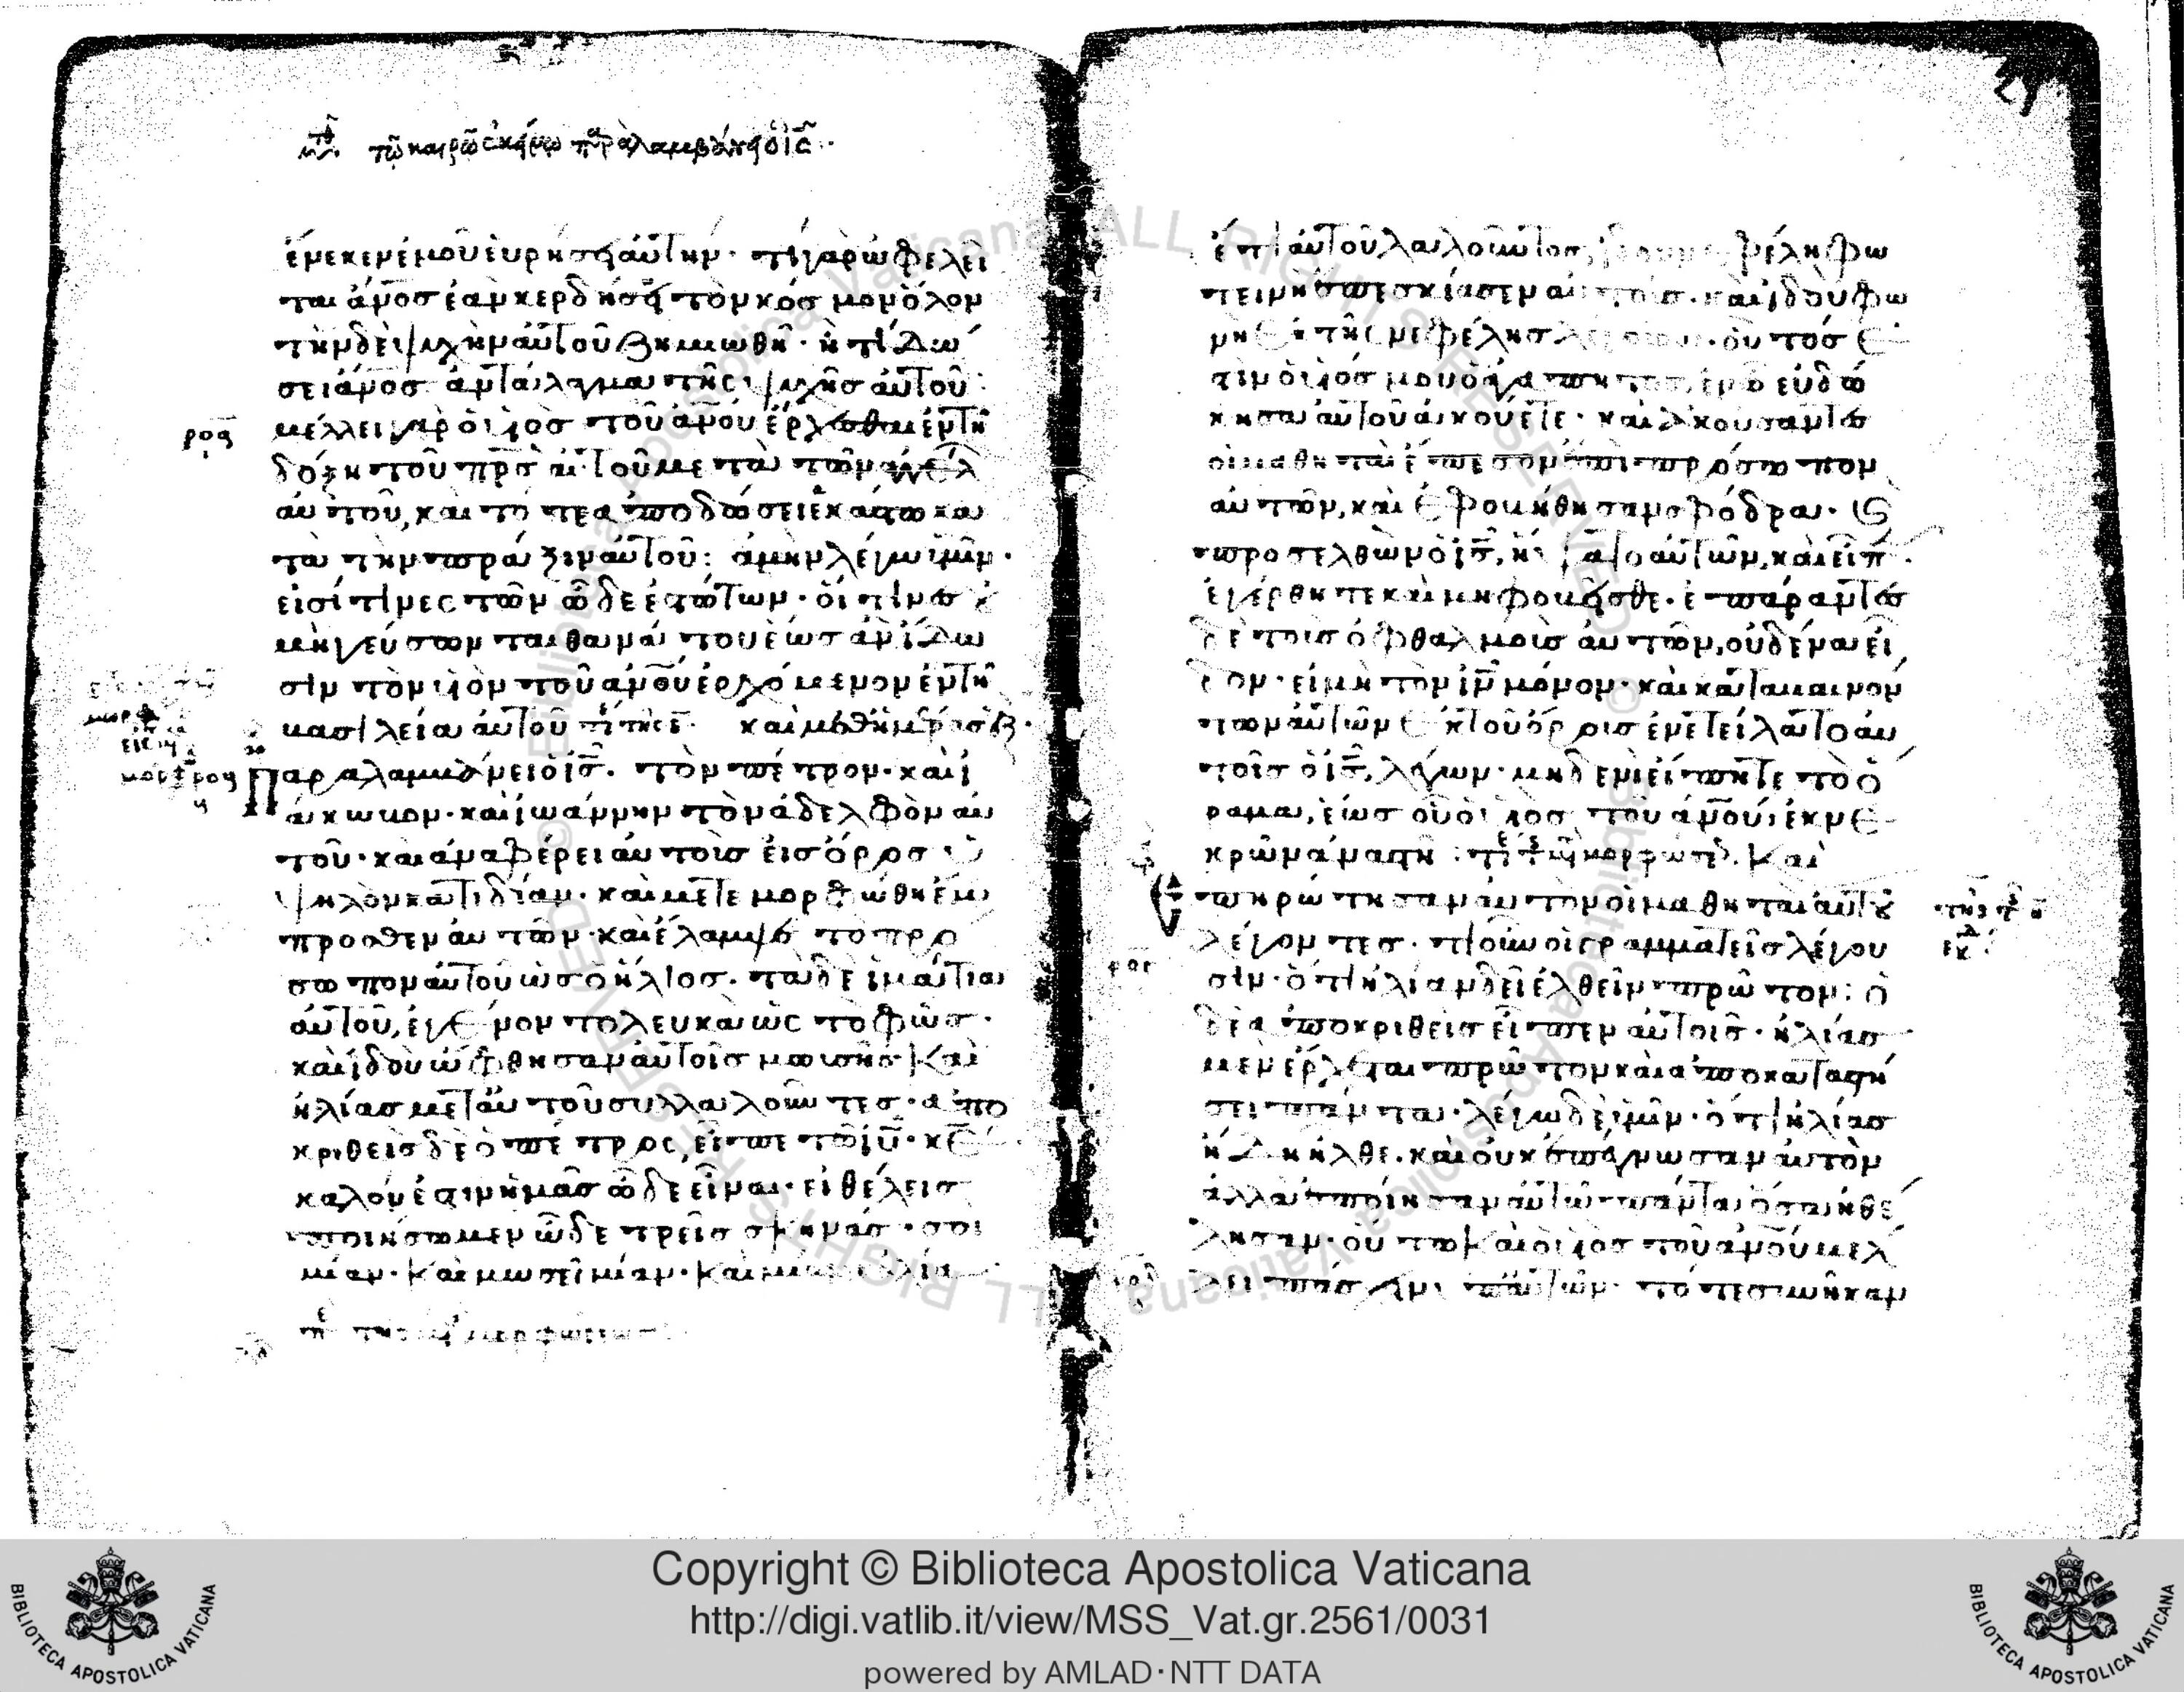 τῶ καιρῶ ἐκείνω παραλαμβάνει ὁ ις
ἕνεκεν ἐμοῦ εὑρήσει αὐτήν· τί γὰρ ὠφελεῖ
ται ἄνος ἐὰν κερδήση τὸν κόσμον ὅλον
τὴν δὲ ψυχὴν αὐτοῦ ζημιωθῆ· ἢ τί δώ
σει ἄνος ἀντάλαγμα τῆς ψυχῆς αὐτοῦ:
μέλλει γὰρ ὁ υἱὸς τοῦ ἀνου ἔρχεσθαι ἐν τῆ
δόξη τοῦ πρς αὐτοῦ μετὰ τῶν ἀγγέλ
αὐτοῦ, καὶ τότε ἀποδώσει ἑκάστω κα
τὰ τὴν πράξιν αὐτοῦ: ἀμὴν λέγω ὑμῖν·
εἰσί τινες τῶν ὧδε ἑστώτων· οἵτινες οὐ
μὴ γεύσωνται θανάτου ἕως ἂν ἴδω
σιν τὸν υἱὸν τοῦ ἀνου ἐρχόμενον ἐν τῆ
βασιλεία αὐτοῦ καὶ μεθ ἡμέρας
Παραλαμβάνει ὁ ις. τὸν πέτρον· καὶ ἰ
άκωβον· καὶ ἰωάννην τὸν ἀδελφὸν αὐ
τοῦ· καὶ ἀναφέρει αὐτοὺς εἰς ὄρος ὑ
ψηλὸν κατιδίαν· καὶ μετεμορφώθη ἔμ
προσθεν αὐτῶν· καὶ ἔλαμψε τὸ πρό
σωπον αὐτοῦ ὡς ὁ ἥλιος. τὰ δὲ ἱμάτια
αὐτοῦ, ἐγένοντο λευκὰ ὡς τὸ φῶς·
καὶ ἰδοὺ ὤφθησαν αὐτοῖς μωσῆς Καὶ
ἠλίας μετ αὐτοῦ συλλαλοῦντες· ἀπο
κριθεὶς δὲ ὁ πέτρος, εἶπε τῶ ιυ· κε
καλόν ἐστιν ἡμᾶς ὧδε εἶναι· εἰ θέλεις
ποιήσωμεν ὧδε τρεῖς σκηνάς· σοὶ
μίαν· Καὶ μωσεῖ μίαν· Καὶ μίαν ἠλία
ἔτι αὐτοῦ λαλοῦντος, νεφέλη φω
τεινὴ ἐπεσκίασεν αὐτοὺς· καὶ ἰδοὺ φω
νὴ ἐκ τῆς νεφέλης λέγουσα· οὗτός ἐ
στιν ὁ υἱός μου ὁ ἀγαπητὸς, ἐν ὧ εὐδό
κησα αὐτοῦ ἀκούετε· καὶ ἀκούσαντες
οἱ μαθηταὶ ἔπεσον ἐπὶ πρόσωπον
αὐτῶν, καὶ ἐφοβήθησαν σφόδρα· καὶ
προσελθὼν ὁ ις, ἥψατο αὐτῶν, καὶ εἶπ
ἐγέρθητε καὶ μὴ φοβεῖσθε· ἐπάραντες
δὲ τοὺς ὀφθαλμοὺς αὐτῶν, οὐδένα εἶ
δον· εἰ μὴ τὸν ιν μόνον· καὶ καταβαινόν
των αὐτῶν ἐκ τοῦ ὄρους ἐνετείλατο αὐ
τοῖς ὁ ις, λέγων· μηδενὶ εἴπητε τὸ ὅ
ραμα, ἕως οὗ ὁ υἱὸς τοῦ ἀνου ἐκ νε
κρῶν ἀναστῆ: Καὶ
πηρώτησαν αὐτὸν οἱ μαθηταὶ αὐτοῦ
λέγοντες· τί οὖν οἱ γραμματεῖς λέγου
σιν· ὅτι ἠλίαν δεῖ ἐλθεῖν πρῶτον: ὁ
δὲ ἀποκριθεὶς εἶπεν αὐτοῖς· ἠλίας
μὲν ἔρχεται πρῶτον καὶ ἀποκαταστή
σει πάντα· λέγω δὲ ὑμῖν· ὅτι ἠλίας
ἤδη ἦλθε. καὶ οὐκ ἐπέγνωσαν αὐτὸν
ἀλλὰ ἐποίησαν αὐτῶ πάντα ὅσα ἠθέ
λησαν· οὕτω Καὶ ὁ υἱὸς τοῦ ἀνου μέλ
λει πάσχειν ὑπ αὐτῶν· τότε συνῆκαν